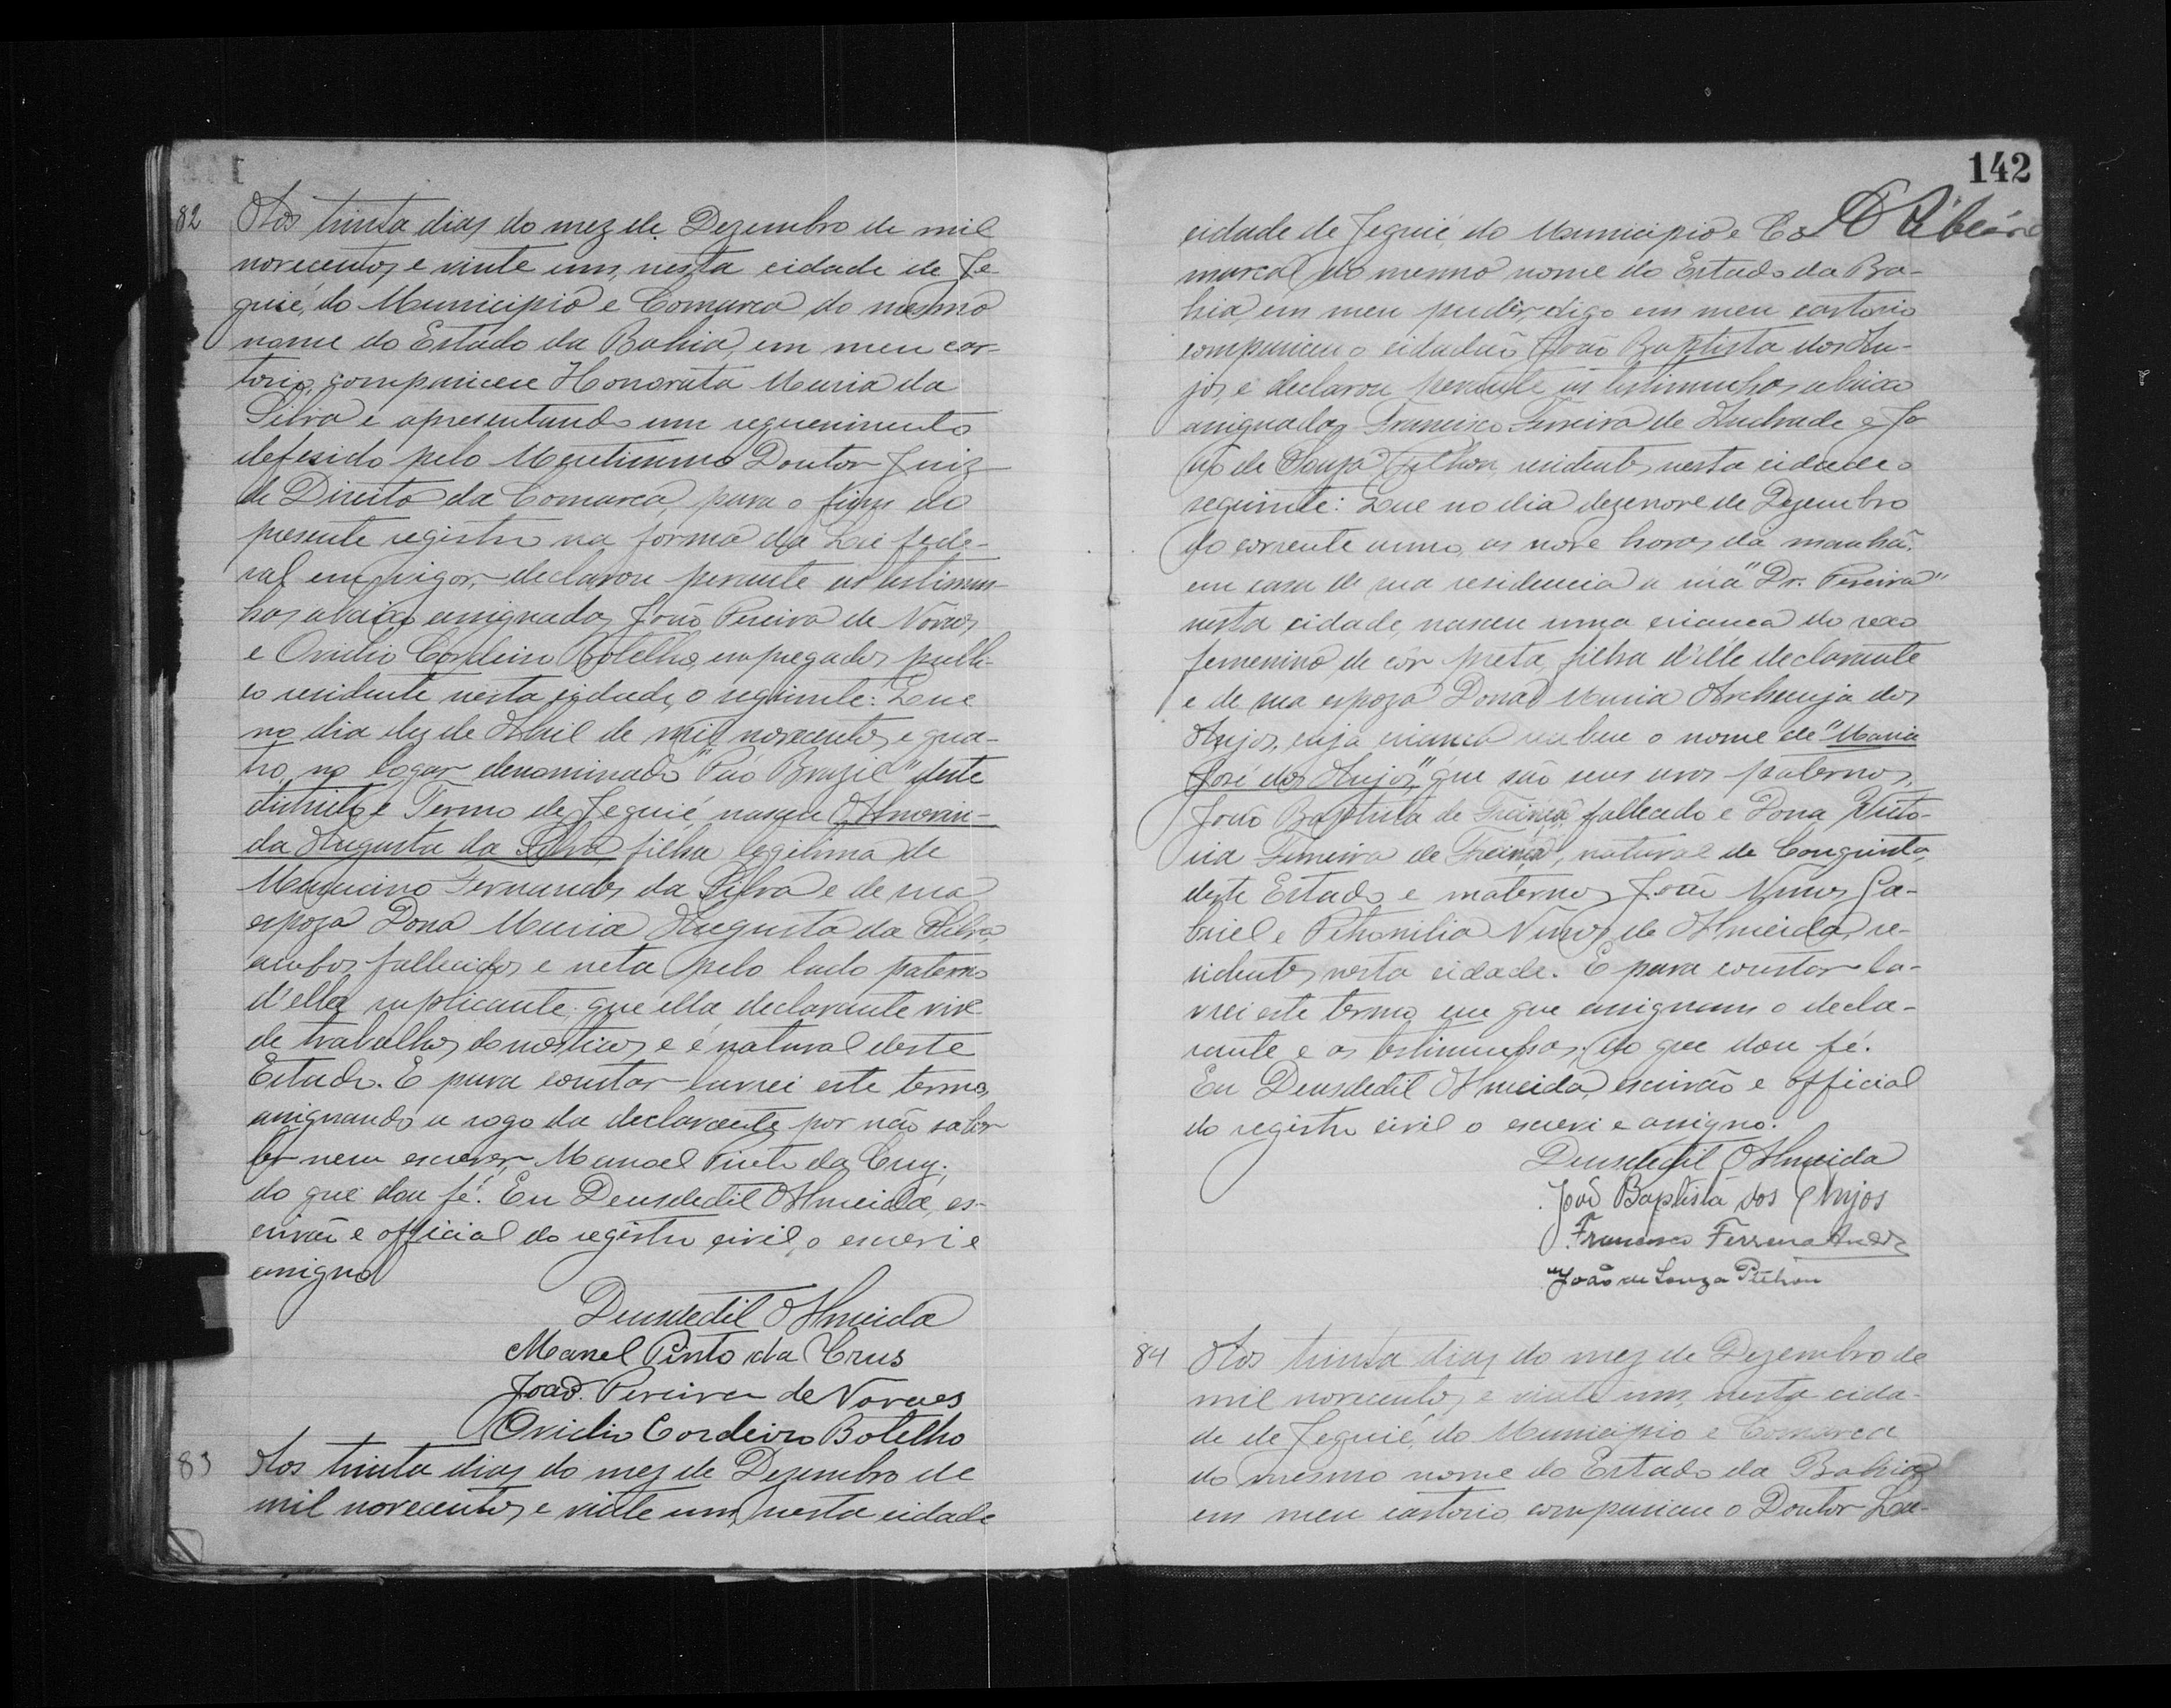 82 Aos trinta dias do mez de Dezembro de mil
novecentos e vinte um, nesta cidade de Je-
quié, do Municipio e Comarca do mesmo
nome do Estado da Bahia, em meu car-
torio, compareceu Honorata Maria da
Silva e apresentando um requerimento
deferido pelo Meritissimo Doutor Juiz
de Direito da Comarca, para o fim do
presente registro na forma da Lei fede-
ral em vigor, declarou perante as testimu-
nhas abaixo assignadas João Pereira de Novaes
e Ovidio Cordeiro Botelho, empregados publi-
co residente nesta cidade, o seguinte: Que
no dia dez de Abril de mil novecentos e qua-
tro, no logar denominado "Páo Brazil" deste
districto e Termo de Jequié, nasceu Almerin-
da Augusta da Silva, filha legitima de
Fernandes da Silva e de sua
espoza Dona Maria Augusta da Silva,
ambos fallecidos e neta pelo lado paterno
d'ella suplicante, que ella declarante vive
de trabalhos domesticos e é natural deste
Estado. E para constar lavrei este termo,
assignando a rogo da declarante por não saber
ler nem escrever, Manoel Pinto da Cruz,
do que dou fé. Eu Deusdedit Almeida, es-
crivão e official do registro civil, o escrevi e
assigno
Deusdedit Almeida
Manel Pinto da Crus
João Pereira de Novaes
Ovidio Cordeiro Botelho
83 Aos trinta dias do mez de Dezembro de
mil novecentos e vinte um, nesta cidade
142
cidade de Jequié, do Municipio e Co-
marca do mesmo nome do Estado da Ba-
hia, em meu puder, digo em meu cartorio
compareceu o cidadão João Baptista dos An-
jos, e declarou perante as testimunhas abaixo
assignadas Francisco Ferreira de Andrade e Jo
ão de Souza Pithon, residentes nesta cidade o
seguinte: Que no dia dezenove de Dezembro
do corrente anno, as nove horas da manhã,
em casa de sua residencia a rua "Dr. Pereira"
nesta cidade, nasceu uma creança do sexo
femenino de côr preta, filha d'elle declarante
e de sua espoza Dona Maria Archanja dos
Anjos, cuja creança recebeu o nome de "Maria
José dos Anjos", que são seus avos paternos,
João Baptista de França, fallecido e Dona Victo-
ria Ferreira de França, natural de Conquista,
deste Estado e maternos João Nunes Ga-
briel e Petronilia Nunes de Almeida, re-
sidentes nesta cidade. E para constar la-
vrei este termo em que assignam o decla-
rante e as testimunhas, do que dou fé.
Eu Deusdedit Almeida, escrivão e official
do registro civil o escrevi e assigno.
Deusdedit Almeida
João Baptista dos Anjos
Francisco Ferreira
João de Souza Pithon
84 Aos trinta dias do mez de Dezembro de
mil novecentos e vinte um, nesta cida-
de de Jequié, do Municipio e Comarca
do mesmo nome do Estado da Bahia,
em meu cartorio, compareceu o Doutor Lau-